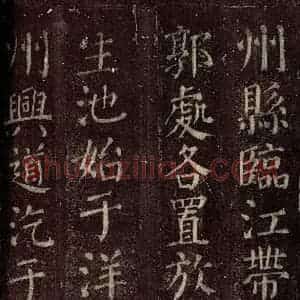 州縣臨江帶
郭處各置放
生池始于洋
州興道汔于
shufazilios.com